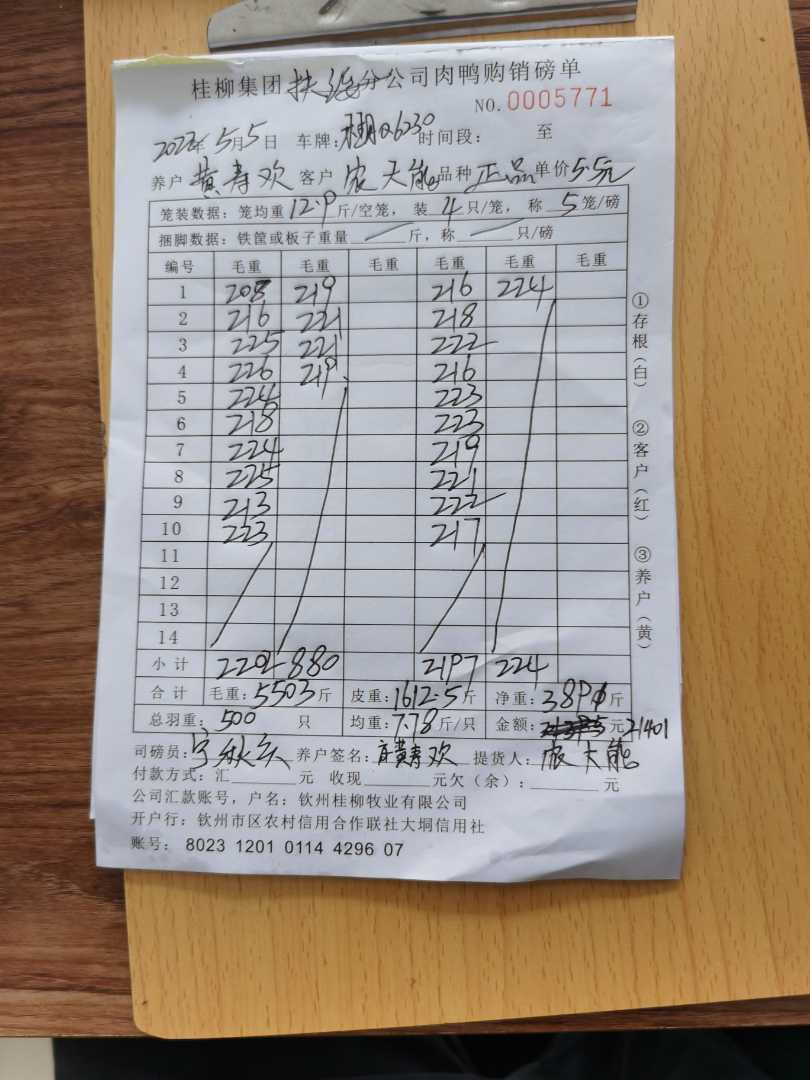 桂柳集团扶绥分公司肉鸭购销磅单
NO.0005771
2022年5月5日 车牌: 时间段: 至
养户 黄寿欢 客户 农天能 品种 正品 单价 5.5元
笼装数据：笼均重12.9斤/空笼，装4只/笼，称5笼/磅
捆脚数据：铁筐或板子重量 斤，称 只/磅
编号 毛重 毛重 毛重 毛重 毛重 毛重
1 208 219 216 224
2 216 221 218
3 225 221 222
4 226 219 216
5 224 223
6 218 223
7 224 219
8 225 221
9 213 222
10 223 217
11
12
13
14
小计 2202 880 2197 224
合计 毛重：5503斤 皮重：1612.5斤 净重：斤
总羽重：500只 均重：7.78斤/只 金额：元 21401
司磅员： 养户签名：黄寿欢 提货人：农天能
付款方式：汇 元 收现 元欠（余）： 元
公司汇款账号，户名：钦州桂柳牧业有限公司
开户行：钦州市区农村信用合作联社大垌信用社
账号： 8023 1201 0114 4296 07
①存根（白）
②客户（红）
③养户（黄）